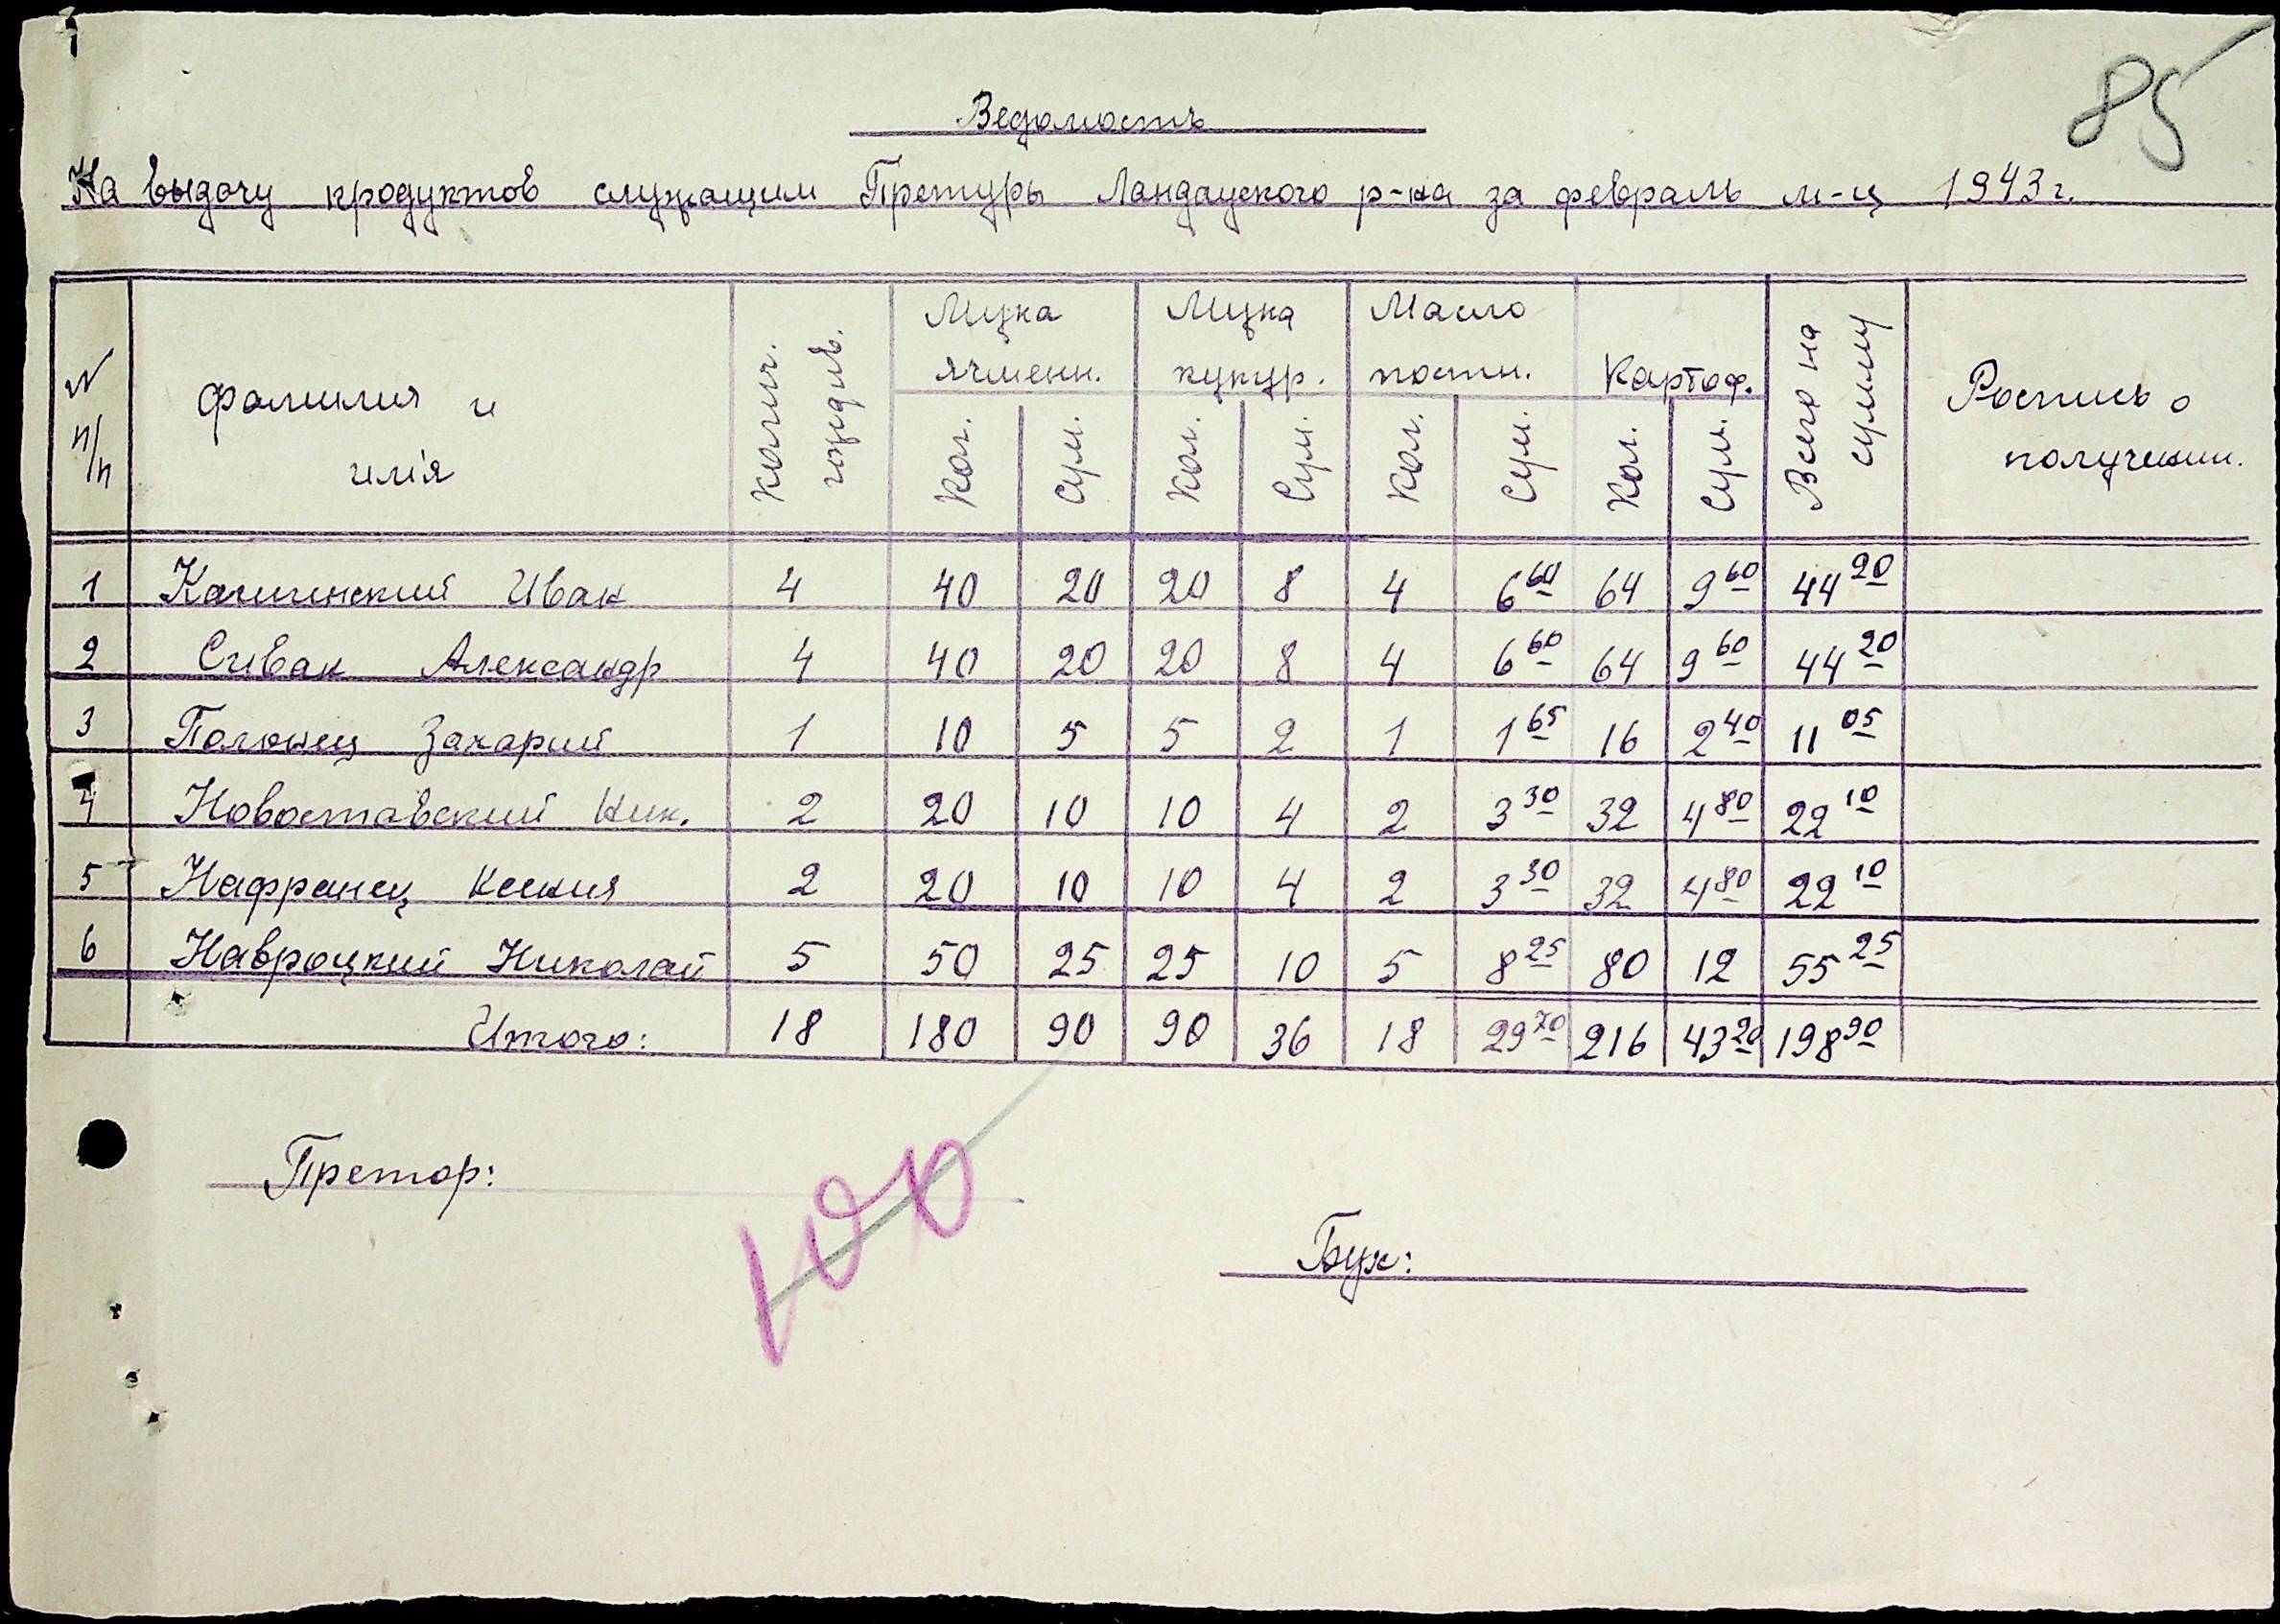 85
Ведомость
На выдачу продуктов служащим Претуры Ландауского р-на за февраль м-ц 1943 г.
№ п/п | фамилия и имія | колич. | Мука ячменн. | Мука кукур. | Масло постн. | Картоф. | Всего на сумму | Роспись о получении.
Кол. | Сум. | Кол. | Сум. | Кол. | Сум. | Кол. | Сум.
1 | Качинский Иван | 4 | 40 | 20 | 20 | 8 | 4 | 6 60 | 64 | 9 60 | 44 20
2 | Сивак Александр | 4 | 40 | 20 | 20 | 8 | 4 | 6 60 | 64 | 9 60 | 44 20
3 | Полонец Захарий | 1 | 10 | 5 | 5 | 2 | 1 | 1 65 | 16 | 2 40 | 11 05
4 | Новоставский Ник. | 2 | 20 | 10 | 10 | 4 | 2 | 3 30 | 32 | 4 80 | 22 10
5 | Нафранец Ксения | 2 | 20 | 10 | 10 | 4 | 2 | 3 30 | 32 | 4 80 | 22 10
6 | Навроцкий Николай | 5 | 50 | 25 | 25 | 10 | 5 | 8 25 | 80 | 12 | 55 25
Итого: | 18 | 180 | 90 | 90 | 36 | 18 | 29 70 | 216 | 43 20 | 198 90
Претор:
100
Бух: